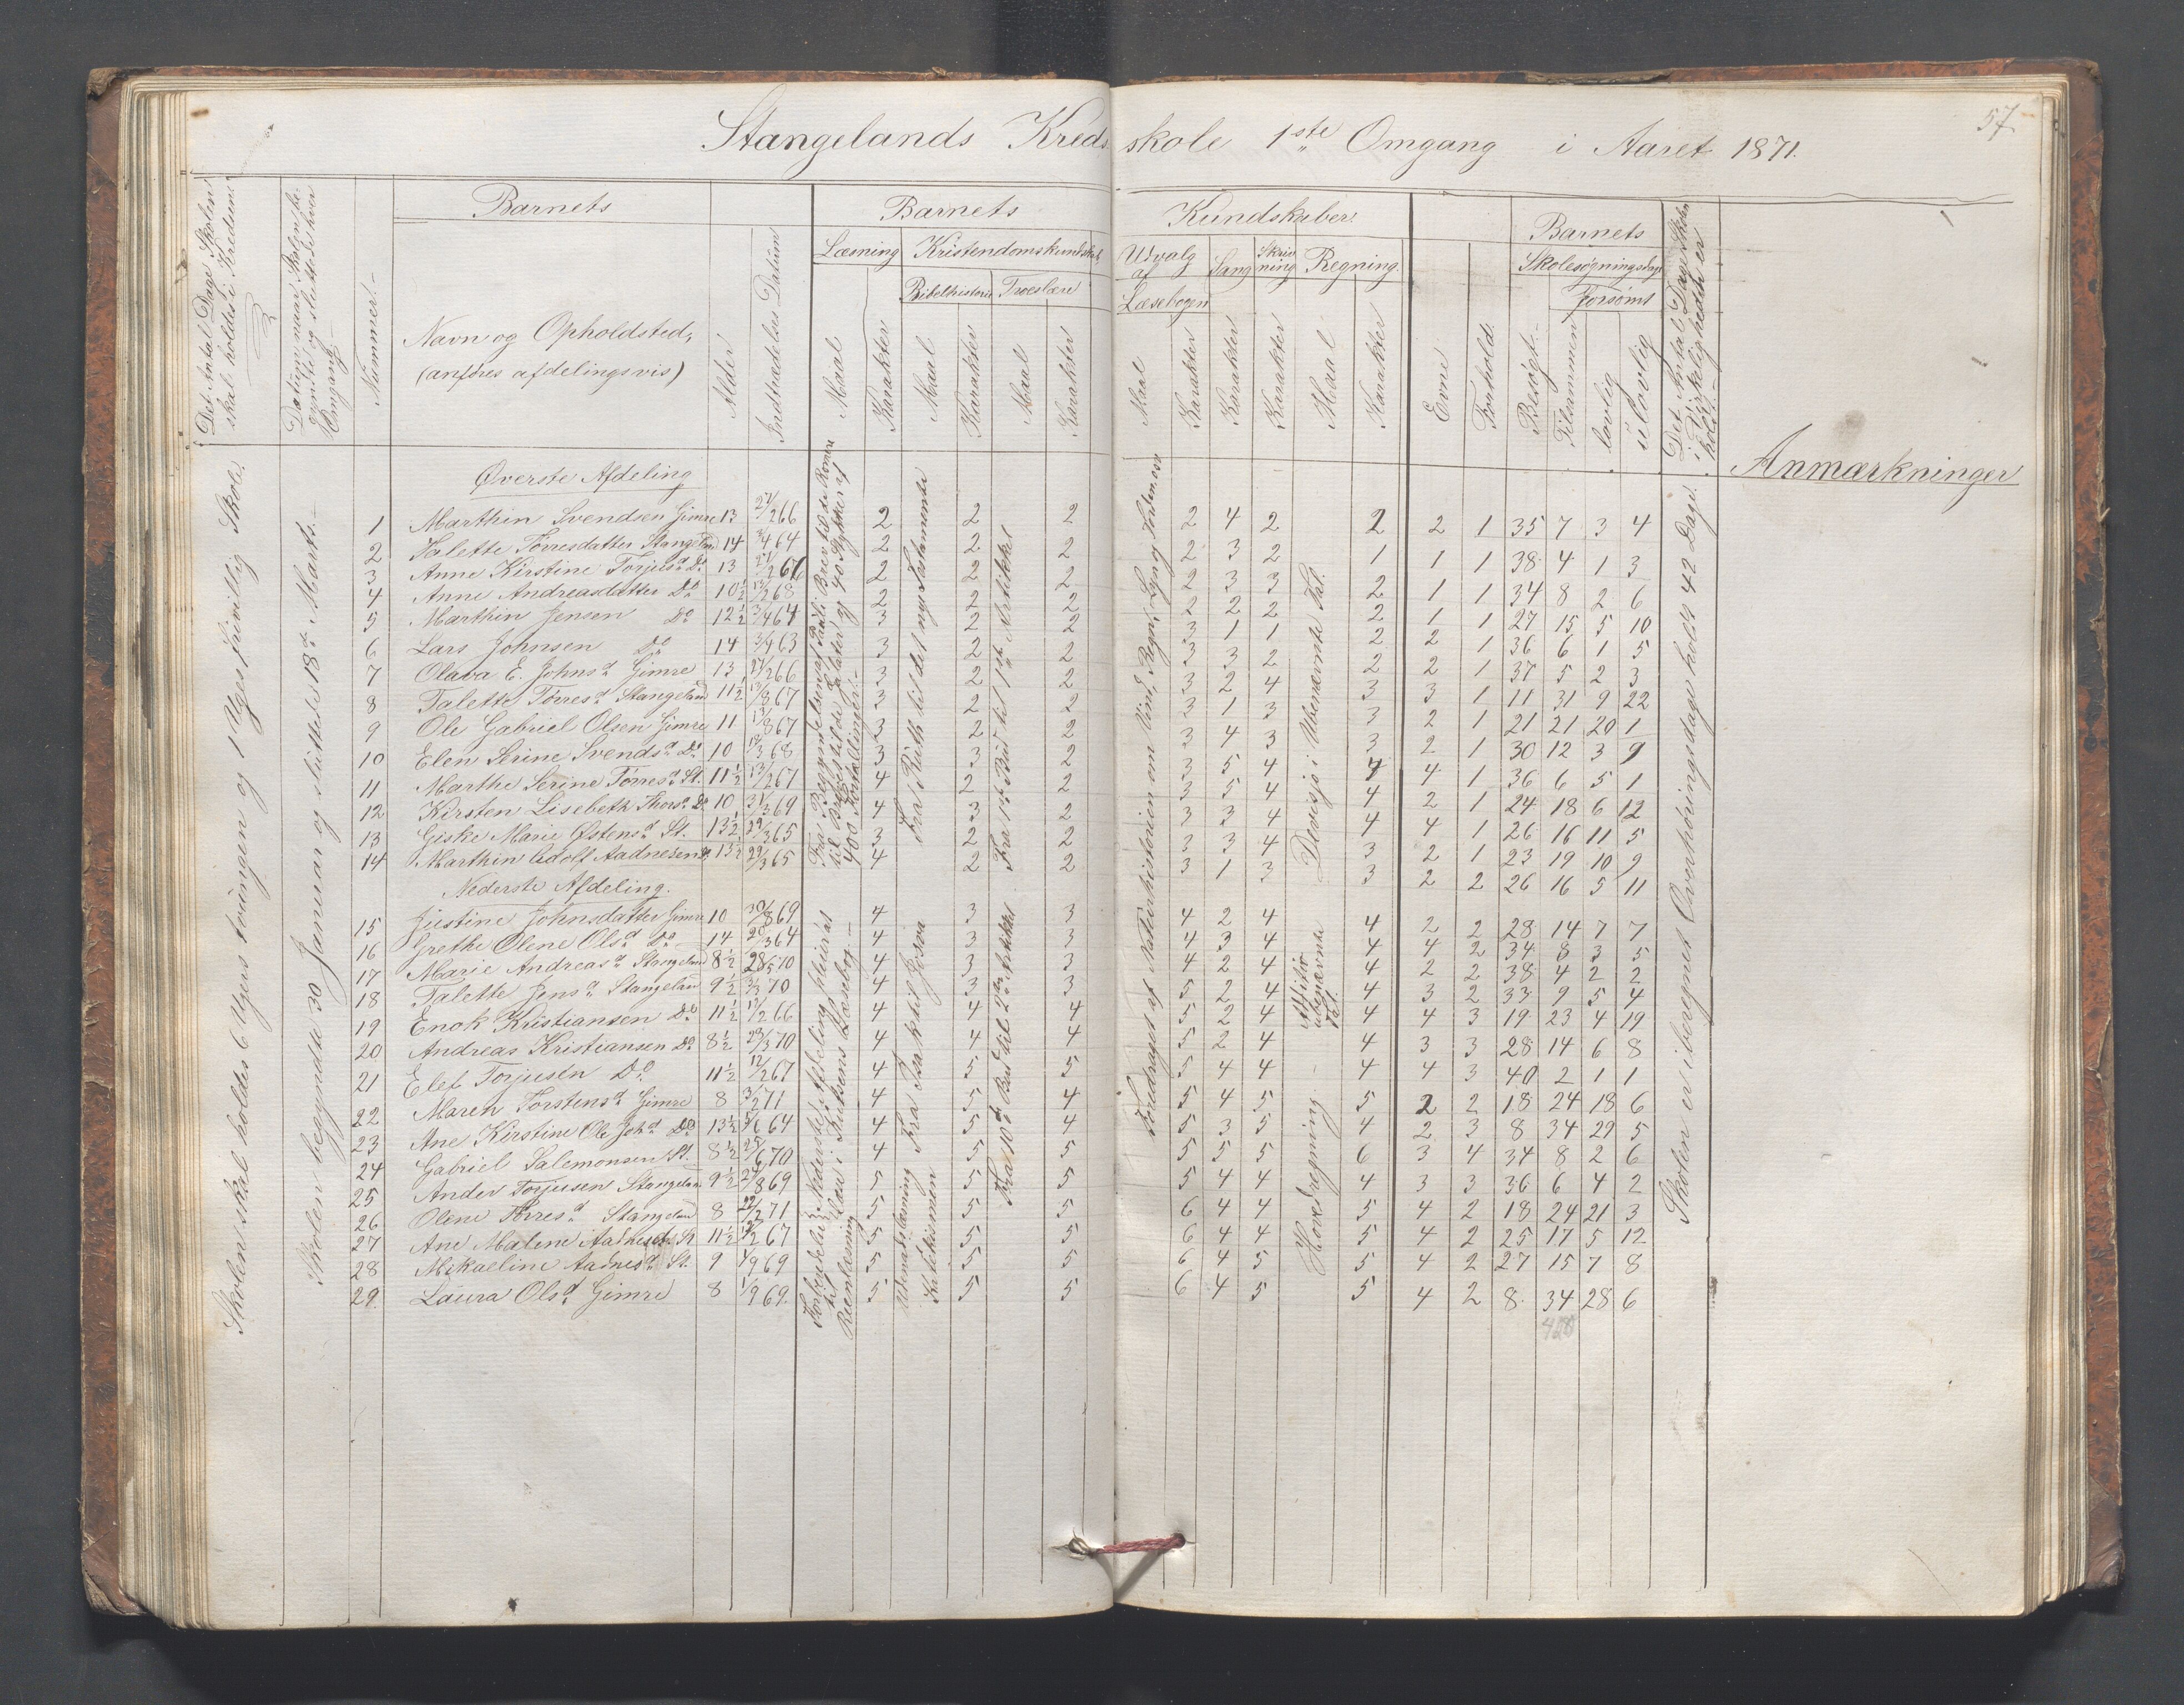 57
Stangelands Kredsskole 1ste Omgang i Aaret 1871.
Det Antal Dage Skolen skal holdes i Kredsen
Datum, naar Skolen begyndte og sluttede hver Omgang
Nummer.
Barnets
Navn og Opholdsted,
(anføres afdelingsvis)
Alder
Indtrædelses Datum
Barnets Kundskaber
Læsning
Maal
Karakter
Kristendomskundskab
Bibelhistorie
Maal
Karakter
Troeslære
Maal
Karakter
Udvalg af Læsebogen
Maal
Karakter
Sang
Karakter
Skrivning
Karakter
Regning.
Maal
Karakter
Evne
Forhold.
Barnets
Skolesøgningsdage
Besøgt
Forsømt
Tilsammen
lovlig
ulovlig
Det Antal Dage Skolen i Virkeligheden er holdt.
Anmærkninger
Skolen skal holdes 6 Uger tvungen og 1 Uges frivillig Skole.
Skolen begyndte 30 Januar og sluttede 18de Marts.
Øverste Afdeling
1 Marthin Svendsen Gimre 13 27/2 66 2 2 2 2 4 2 2 2 1 35 7 3 4
2 Talette Tørresdatter Stangeland 14 3/4 64 2 2 2 2 3 2 1 1 1 38 4 1 3
3 Anne Kirstine Torjusd. Do 13 27/2 66 2 2 2 2 3 3 2 1 1 34 8 2 6
4 Anne Andreasdatter Do 10½ 13/2 68 2 2 2 2 2 2 2 1 1 27 15 5 10
5 Marthin Jensen Do 12½ 3/4 64 3 2 2 3 1 1 2 2 1 36 6 1 5
6 Lars Johnsen Do 14 3/4 63 3 2 2 3 3 2 2 2 1 37 5 2 3
7 Olava E. Johnsd. Gimre 13 27/2 66 3 2 2 3 2 4 3 3 1 11 31 9 22
8 Talette Tørresd. Stangeland 11½ 13/8 67 3 2 2 3 1 3 3 2 1 21 21 20 1
9 Ole Gabriel Olsen Gimre 11 13/8 67 3 2 2 3 4 3 3 2 1 30 12 3 9
10 Elen Serine Svendsd. Do 10 19/3 68 3 3 2 3 5 4 4 4 1 36 6 5 1
11 Marthe Serine Tørresd. St. 11½ 13/2 67 4 2 2 3 5 4 4 2 1 24 18 6 12
12 Kirsten Lisebeth Thorsd. Do 10 31/3 69 4 3 2 3 3 4 4 4 1 26 16 11 5
13 Giske Marie Østensd. St. 13½ 29/3 65 3 2 2 3 3 4 3 2 1 23 19 10 9
14 Marthin Adolf Aadnesen 13½ 29/3 65 4 2 2 3 1 3 3 2 2 26 16 5 11
Nederste Afdeling.
15 Justine Johnsdatter Gimre 10 30/8 69 4 3 3 4 2 4 4 2 2 28 14 7 7
16 Grethe Olene Olsd. Do 14 20/3 64 4 3 3 4 3 4 4 4 2 34 8 3 5
17 Marie Andreasd. Stangeland 8½ 28/5 70 4 3 3 4 2 4 4 2 2 38 4 2 2
18 Talette Jensd. Stangeland 9½ 3/3 70 4 3 3 5 2 4 4 3 2 33 9 5 4
19 Enok Kristiansen Do 11½ 13/2 66 4 4 4 5 2 4 4 4 3 19 23 4 19
20 Andreas Kristiansen Do 8½ 29/3 70 4 4 4 5 2 4 4 3 3 28 14 6 8
21 Elef Torjusen Do 11½ 12/2 67 4 5 5 5 4 4 4 4 3 40 2 1 1
22 Maren Torstensd. Gimre 8 3/2 71 4 5 4 5 4 5 5 2 2 18 24 18 6
23 Ane Kirstine Ole Johd. Do 13½ 64 4 5 4 5 3 5 4 2 3 8 34 29 5
24 Gabriel Salemonsen St. 8½ 25/6 70 4 5 5 5 5 5 6 3 4 34 8 2 6
25 Ander Torjusen Stangeland 9½ 24/8 69 5 5 5 5 4 4 4 3 3 36 6 4 2
26 Olene Tørresd. Stangeland 8 22/2 71 5 5 5 6 4 4 5 4 2 18 24 21 3
27 Ane Malene Aadnesd. St 11½ 12/2 67 5 5 5 6 4 4 5 4 2 25 17 5 12
28 Mikaeline Aadnesd. St. 9 1/9 69 5 5 5 6 4 5 5 4 2 27 15 7 8
29. Laura Olsd. Gimre 8 1/9 69. 5 5 5 6 4 5 5 4 2 8 34 28 6
Fra Begyndelsen af Pauli Brev til de Romere til Brevet til de Galater og 40 Stykker af 400 Fortællinger.
Fra Ruth til det nye Testamente
Fra 1ste Bud til 1ste Artikkel
Nederste Afdeling
Læst i Knudsens Læsebog
Renlæsning
Fra Isak til Josva
Udenadslæsning
Katekismen
Fra 10de Bud til 2den Artikkel
Foredraget af Naturhistorien om Vind, Regn, Lyn og Torden osv
Devisjo i Ubenævnte Tal.
Aditio ubenævnte Tal.
Hovedregning
Skolen er iberegnet Overhøringsdage holdt 42 Dage.